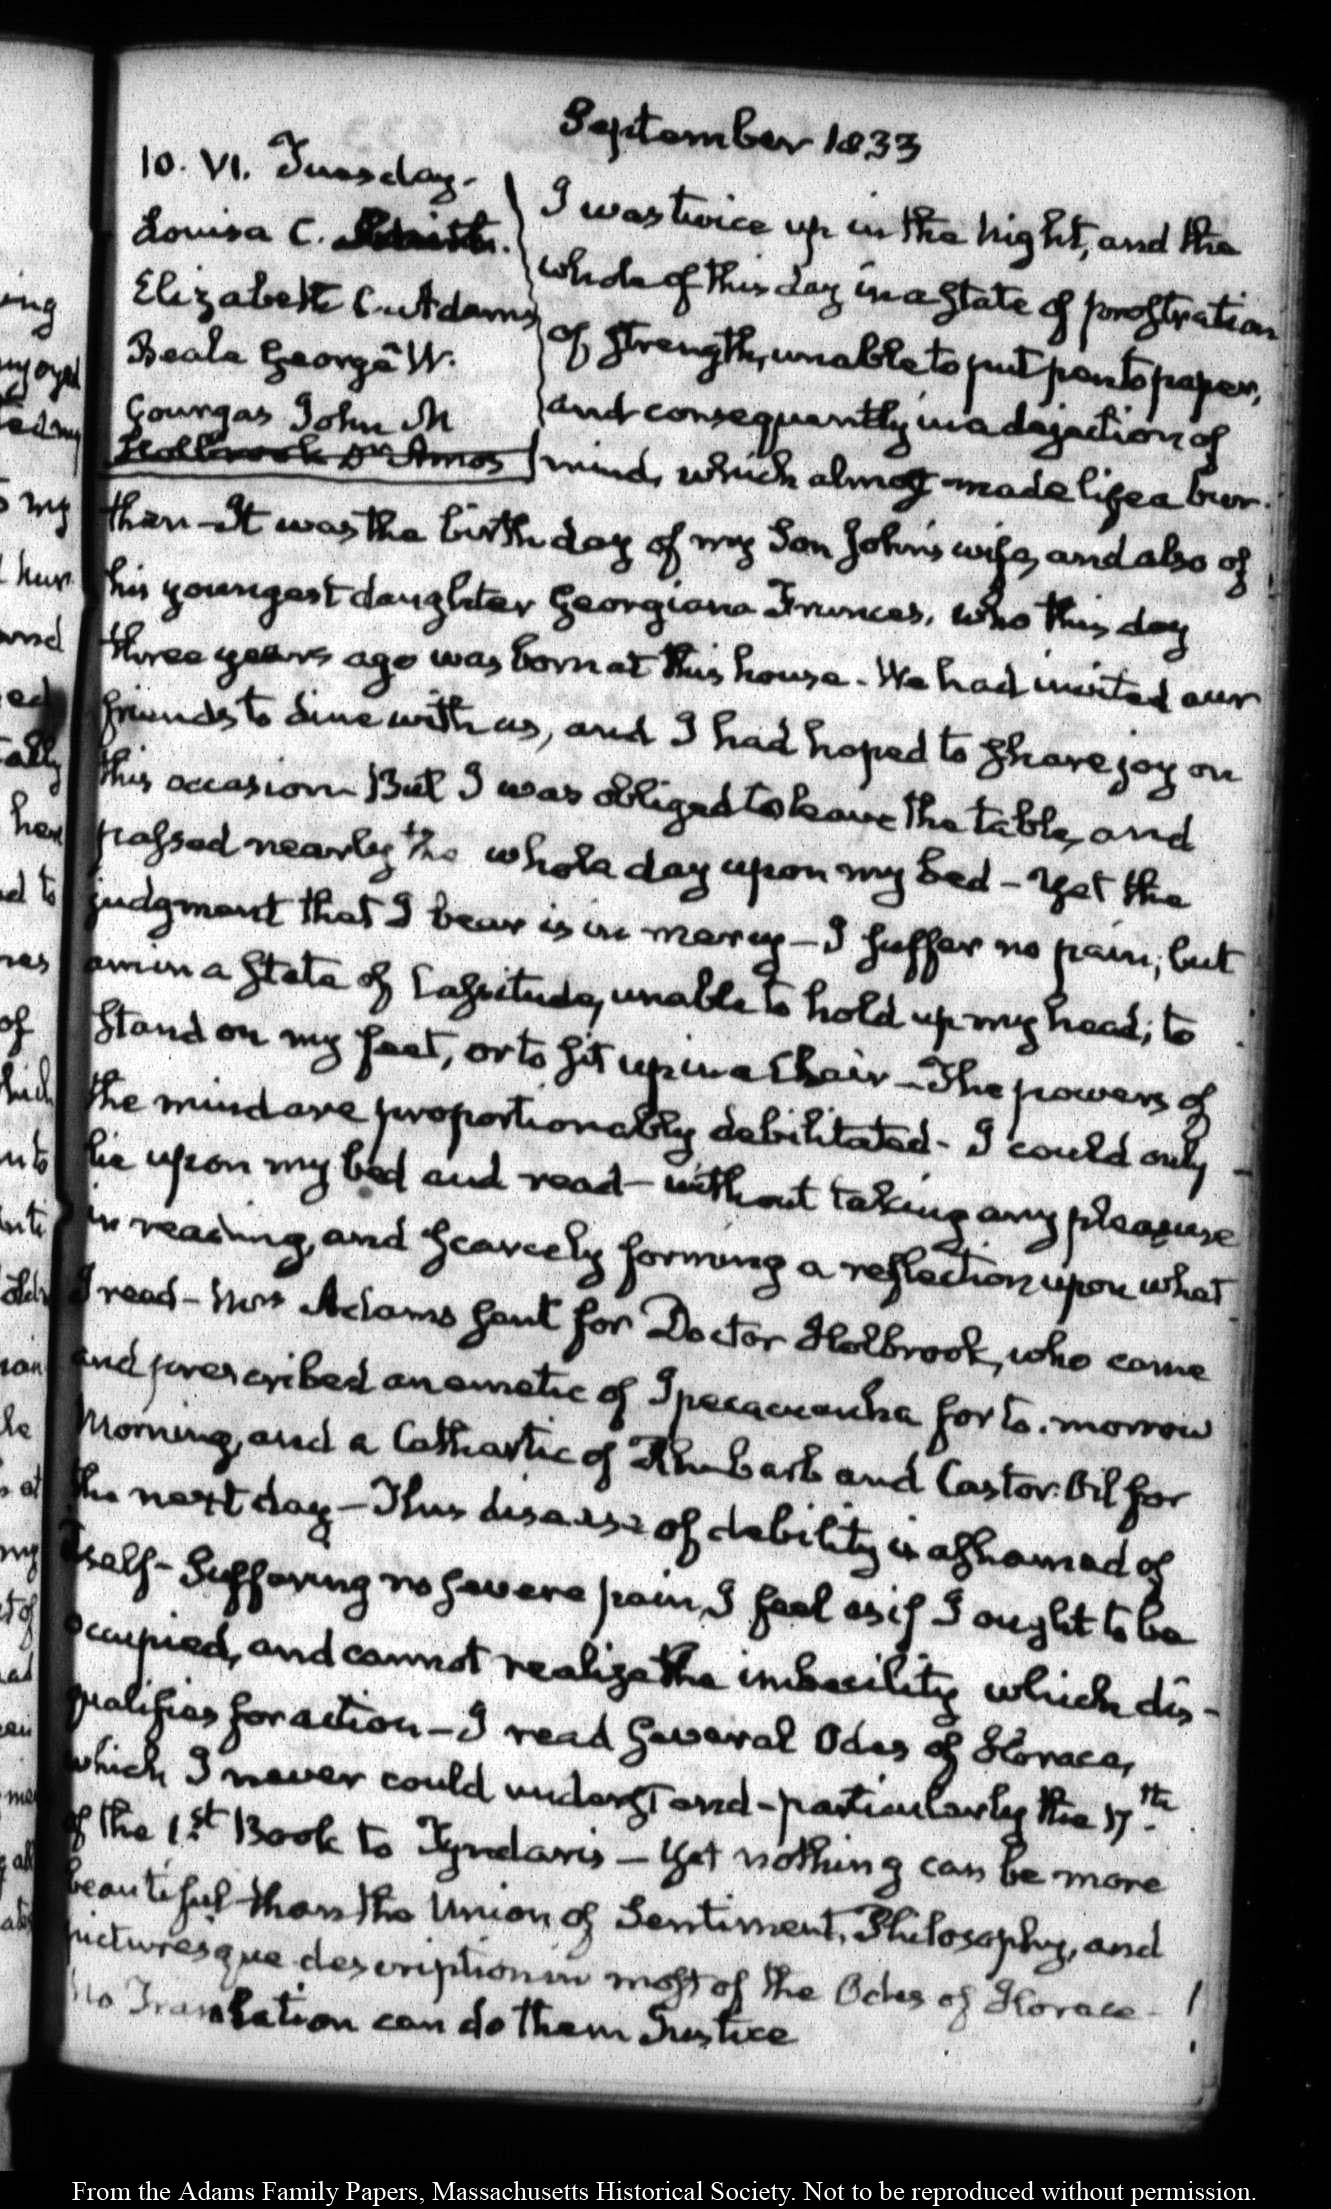 September 1833
10. VI. Tuesday.
Louisa C. Smith.
Elizabeth C. Adams
Beale George W.
Gourgas John M
Holbrook Dr. Amos
I was twice up in the night, and the
whole of this day in a state of prostration
of strength, unable to put pen to paper,
and consequently in a dejection of
mind, which almost made life a bur-
then - It was the birth day of my Son John's wife, and also of
his youngest daughter Georgiana Frances, who this day
three years ago was born at this house. We had invited our
friends to dine with us, and I had hoped to share joy on
this occasion - But I was obliged to leave the table, and
passed nearly the whole day upon my bed - Yet the
judgment that I bear is in mercy - I suffer no pain, but
am in a state of Lassitude, unable to hold up my head; to
stand on my feet, or to sit up in a Chair - The powers of
the mind are proportionably debilitated - I could only
lie upon my bed and read - without taking any pleasure
in reading, and scarcely forming a reflection upon what
I read - Mrs Adams sent for Doctor Holbrook, who came
and prescribed an emetic of Ipecacuanha for to-morrow
Morning, and a Cathartic of Rhubarb and Castor-Oil for
the next day - This disease of debility is ashamed of
itself - Suffering no severe pain, I feel as if I ought to be
occupied, and cannot realize the imbecility which dis-
qualifies for action - I read several Odes of Horace,
which I never could understand - particularly the 17.th
of the 1.st Book to Tyndaris - Yet nothing can be more
beautiful than the Union of Sentiment, Philosophy, and
picturesque description in most of the Odes of Horace -
No Translation can do them Justice
From the Adams Family Papers, Massachusetts Historical Society. Not to be reproduced without permission.